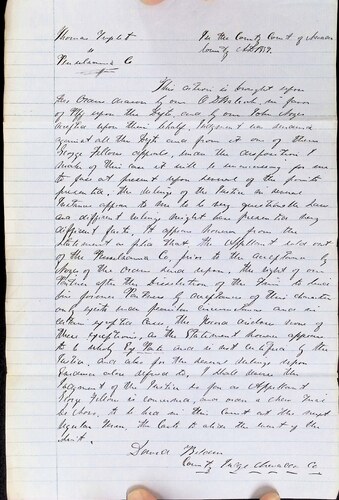 Thomas Triplet In the County Court of
vs County
Co
This action is brought upon
the order drawn by one in favor
of Plff upon the Defts and by one John
accepted upon their behalf. Judgment was rendered
against all the Defts and from it one of them
George Fellows appeals. under the disposition I
make of this case it will be unnecessary for me
to pass at present upon several of the points
presented. The rulings of the Justice in several
instances appear to me to be very questionable
and different rulings might have presented very
different facts. It appears however from the
Statement on file that the Appellant sold out
of the Co. prior to the acceptance by
of the order sued upon. The right of one
Partner after the Dissolution of the Firm to bind
his former Partners by acceptances of this character
only exists under peculiar circumstances and in
certain excepted cases. The Record discloses none of
these exceptions. as the Statement however appears
to be wholly by and is not certified by the
Justice and also for the several rulings upon
Evidence above referred to, I shall reverse the
Judgment of the Justice so far as Appellant
George Fellows is concerned, and order a New Trial
be had, to be had in this Court at the next
regular Term. The Costs to abide the event of the
Suit.
David
County Judge Co